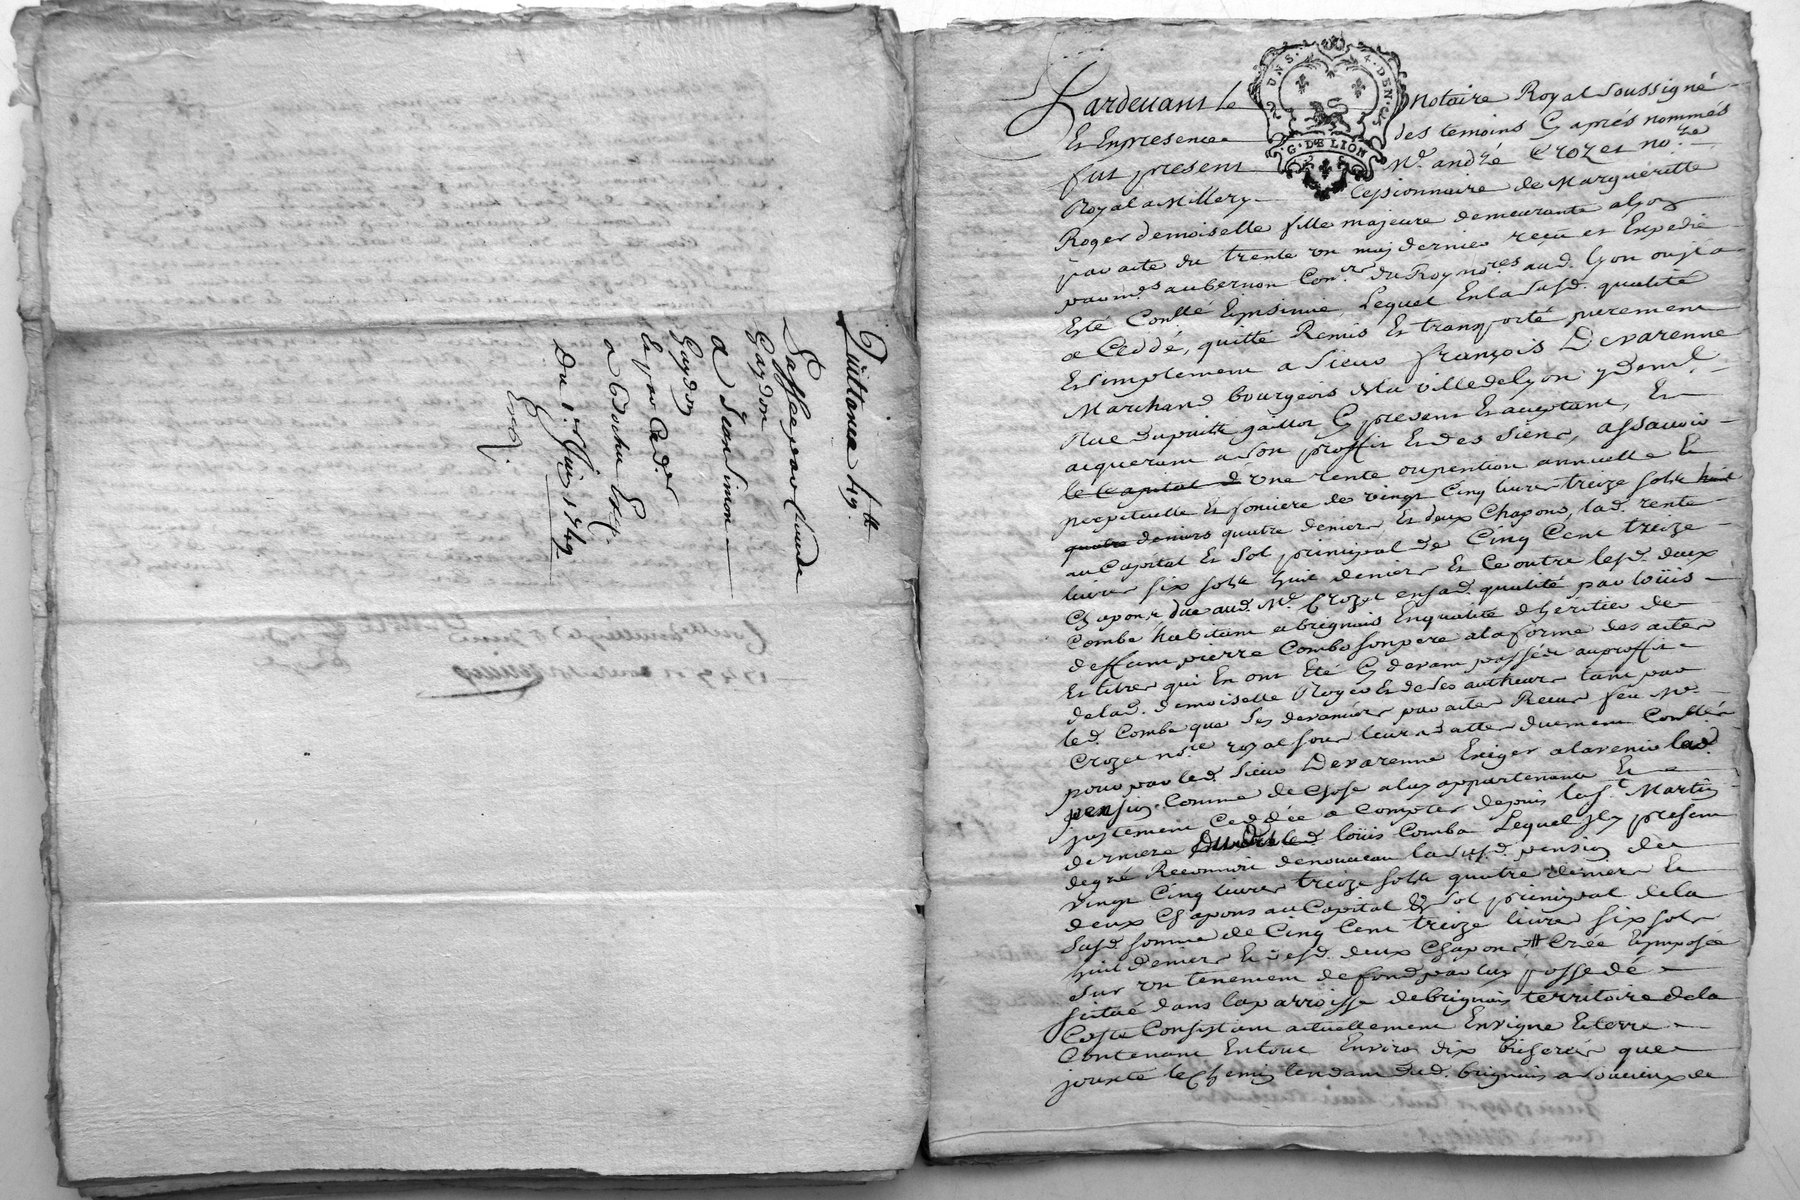 Quittance 49 ₶
Passée par Claude
Gaydon
a Jean Simon
Gaydon
le jeu Cad.
a
Du 1er Juin 1749
DUNS. 4. DEN.
G. DE LION
Pardevant le Notaire Royal soussigné
Et En presence des temoins Cy aprés nommés
fut present Me. andré Crozet nore.
Royal a Millery Cessionnaire de Margueritte
Roger demoiselle fille majeure demeurante a lyon
par acte du trente un may dernier reçu et Expedié
par mes aubernon Conr. du Roy nores aud. Lyon ou
Esté Conllé Lequel En la susd. qualité
a Ceddé, quitté Remis Et transporté purement
Et simplement a Sieur françois Devarenne
Marchand bourgeois de la ville de Lyon y demt.
Rue du puitt gaillot Cy present Et acceptant, Et
acquerant a son proffit Et des siens, assavoir
le Capital d'une rente ou pention annuelle Et
perpetuelle Et fonciere de vingt Cinq livres treize sols huit
quatre deniers quatre deniers Et deux Chapons, lad. rente
au Capital Et sol principal de Cinq Cent treize
livres six sols huit deniers Et Ce outre lesd. deux
Chapons, due aud. Me. Crozet en sad. qualité par loüis
Combe habitant a brignais En qualité d'heritier de
deffunt pierre Combe son pere a la forme des actes
Et titres qui En ont Eté Cy devant passés au proffit
de lad. demoiselle Roger Et de ses autheurs tant par
led. Combe que ses devanciers par actes Reçus feu Me.
Crozet nore royal sous leurs dattes duement Conllés
pour par led. Sieur Devarenne Exiger a l'avenir lad.
pension Comme de Chose a luy appartenante Et
justement Ceddée a Compter depuis la St. Martin
derniere dud. loüis Combe Lequel jcy present
de gré Reconnoit de nouveau la susd. pension de
vingt Cinq livres treize sols quatre deniers Et
deux Chapons au Capital & sol principal de la
susd. somme de Cinq Cent treize livres six sols
huit deniers Et desd. deux Chapons Créée Et imposée
sur un tenement de fond par luy possedé
scitué dans la parroisse de brignais territoire de la
Coste Consistant actuellement En vigne Et terre
Contenant En tout Environ dix bicherées que
jouxte le Chemin tendant dud. brignais a soucieux de